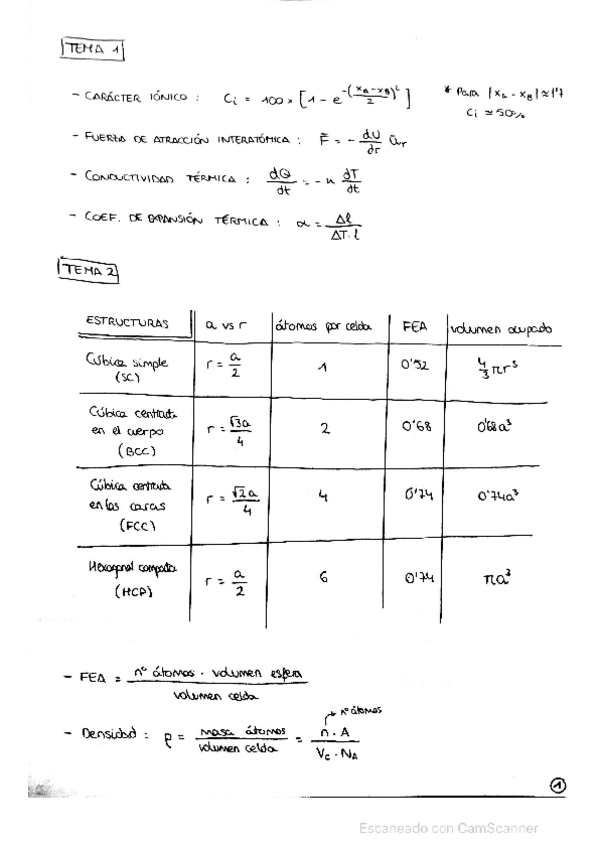 TEMA 1
- CARÁCTER IÓNICO : Ci = 100 x [1 - e^-((xa - xB)/2)²] * Para |xa - xB| ≈ 1'7
Ci ≃ 50%
- FUERZA DE ATRACCIÓN INTERATÓMICA : F̄ = - dU/dr ūr
- CONDUCTIVIDAD TÉRMICA : dQ/dt = - k dT/dt
- COEF. DE EXPANSIÓN TÉRMICA : α = Δl/ΔT·l
TEMA 2
ESTRUCTURAS a vs r átomos por celda FEA volumen ocupado
Cúbica simple (SC) r = a/2 1 0'52 4/3 πr³
Cúbica centrada en el cuerpo (BCC) r = √3a/4 2 0'68 0'68a³
Cúbica centrada en las caras (FCC) r = √2a/4 4 0'74 0'74a³
Hexagonal compacta (HCP) r = a/2 6 0'74 πa³
- FEA = nº átomos · volumen esfera / volumen celda
- Densidad : ρ = masa átomos / volumen celda = n · A / Vc · NA
→ nº átomos
1
Escaneado con CamScanner